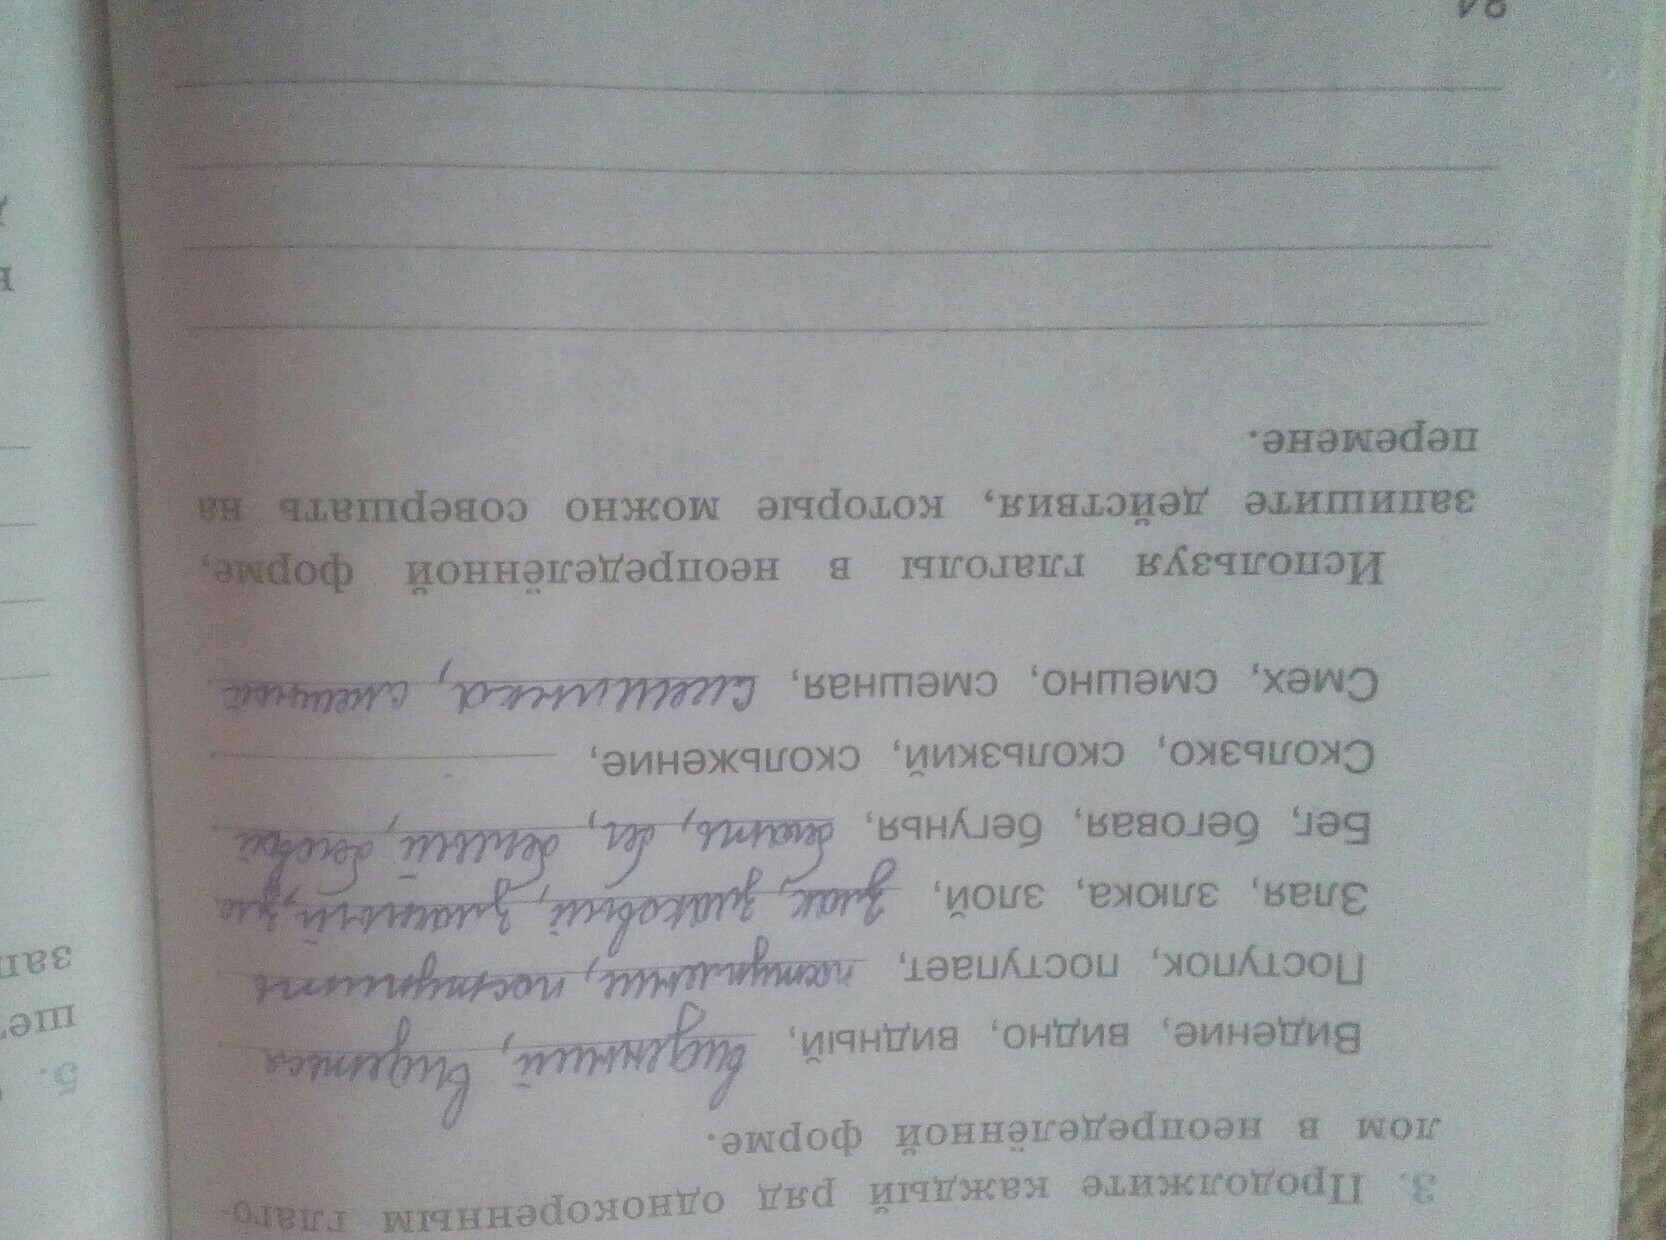 3. Продолжите каждый ряд однокоренным глаго-
лом в неопределённой форме.
Видение, видно, видный, виденный, видется
Поступок, поступает, поступить
Злая, злюка, злой,
Бег, беговая, бегунья, бежать, бег, беговой
Скользко, скользкий, скольжение,
Смех, смешно, смешная, смешинка, смешной
Используя глаголы в неопределённой форме,
запишите действия, которые можно совершать на
перемене.
84
5.
шет
зап